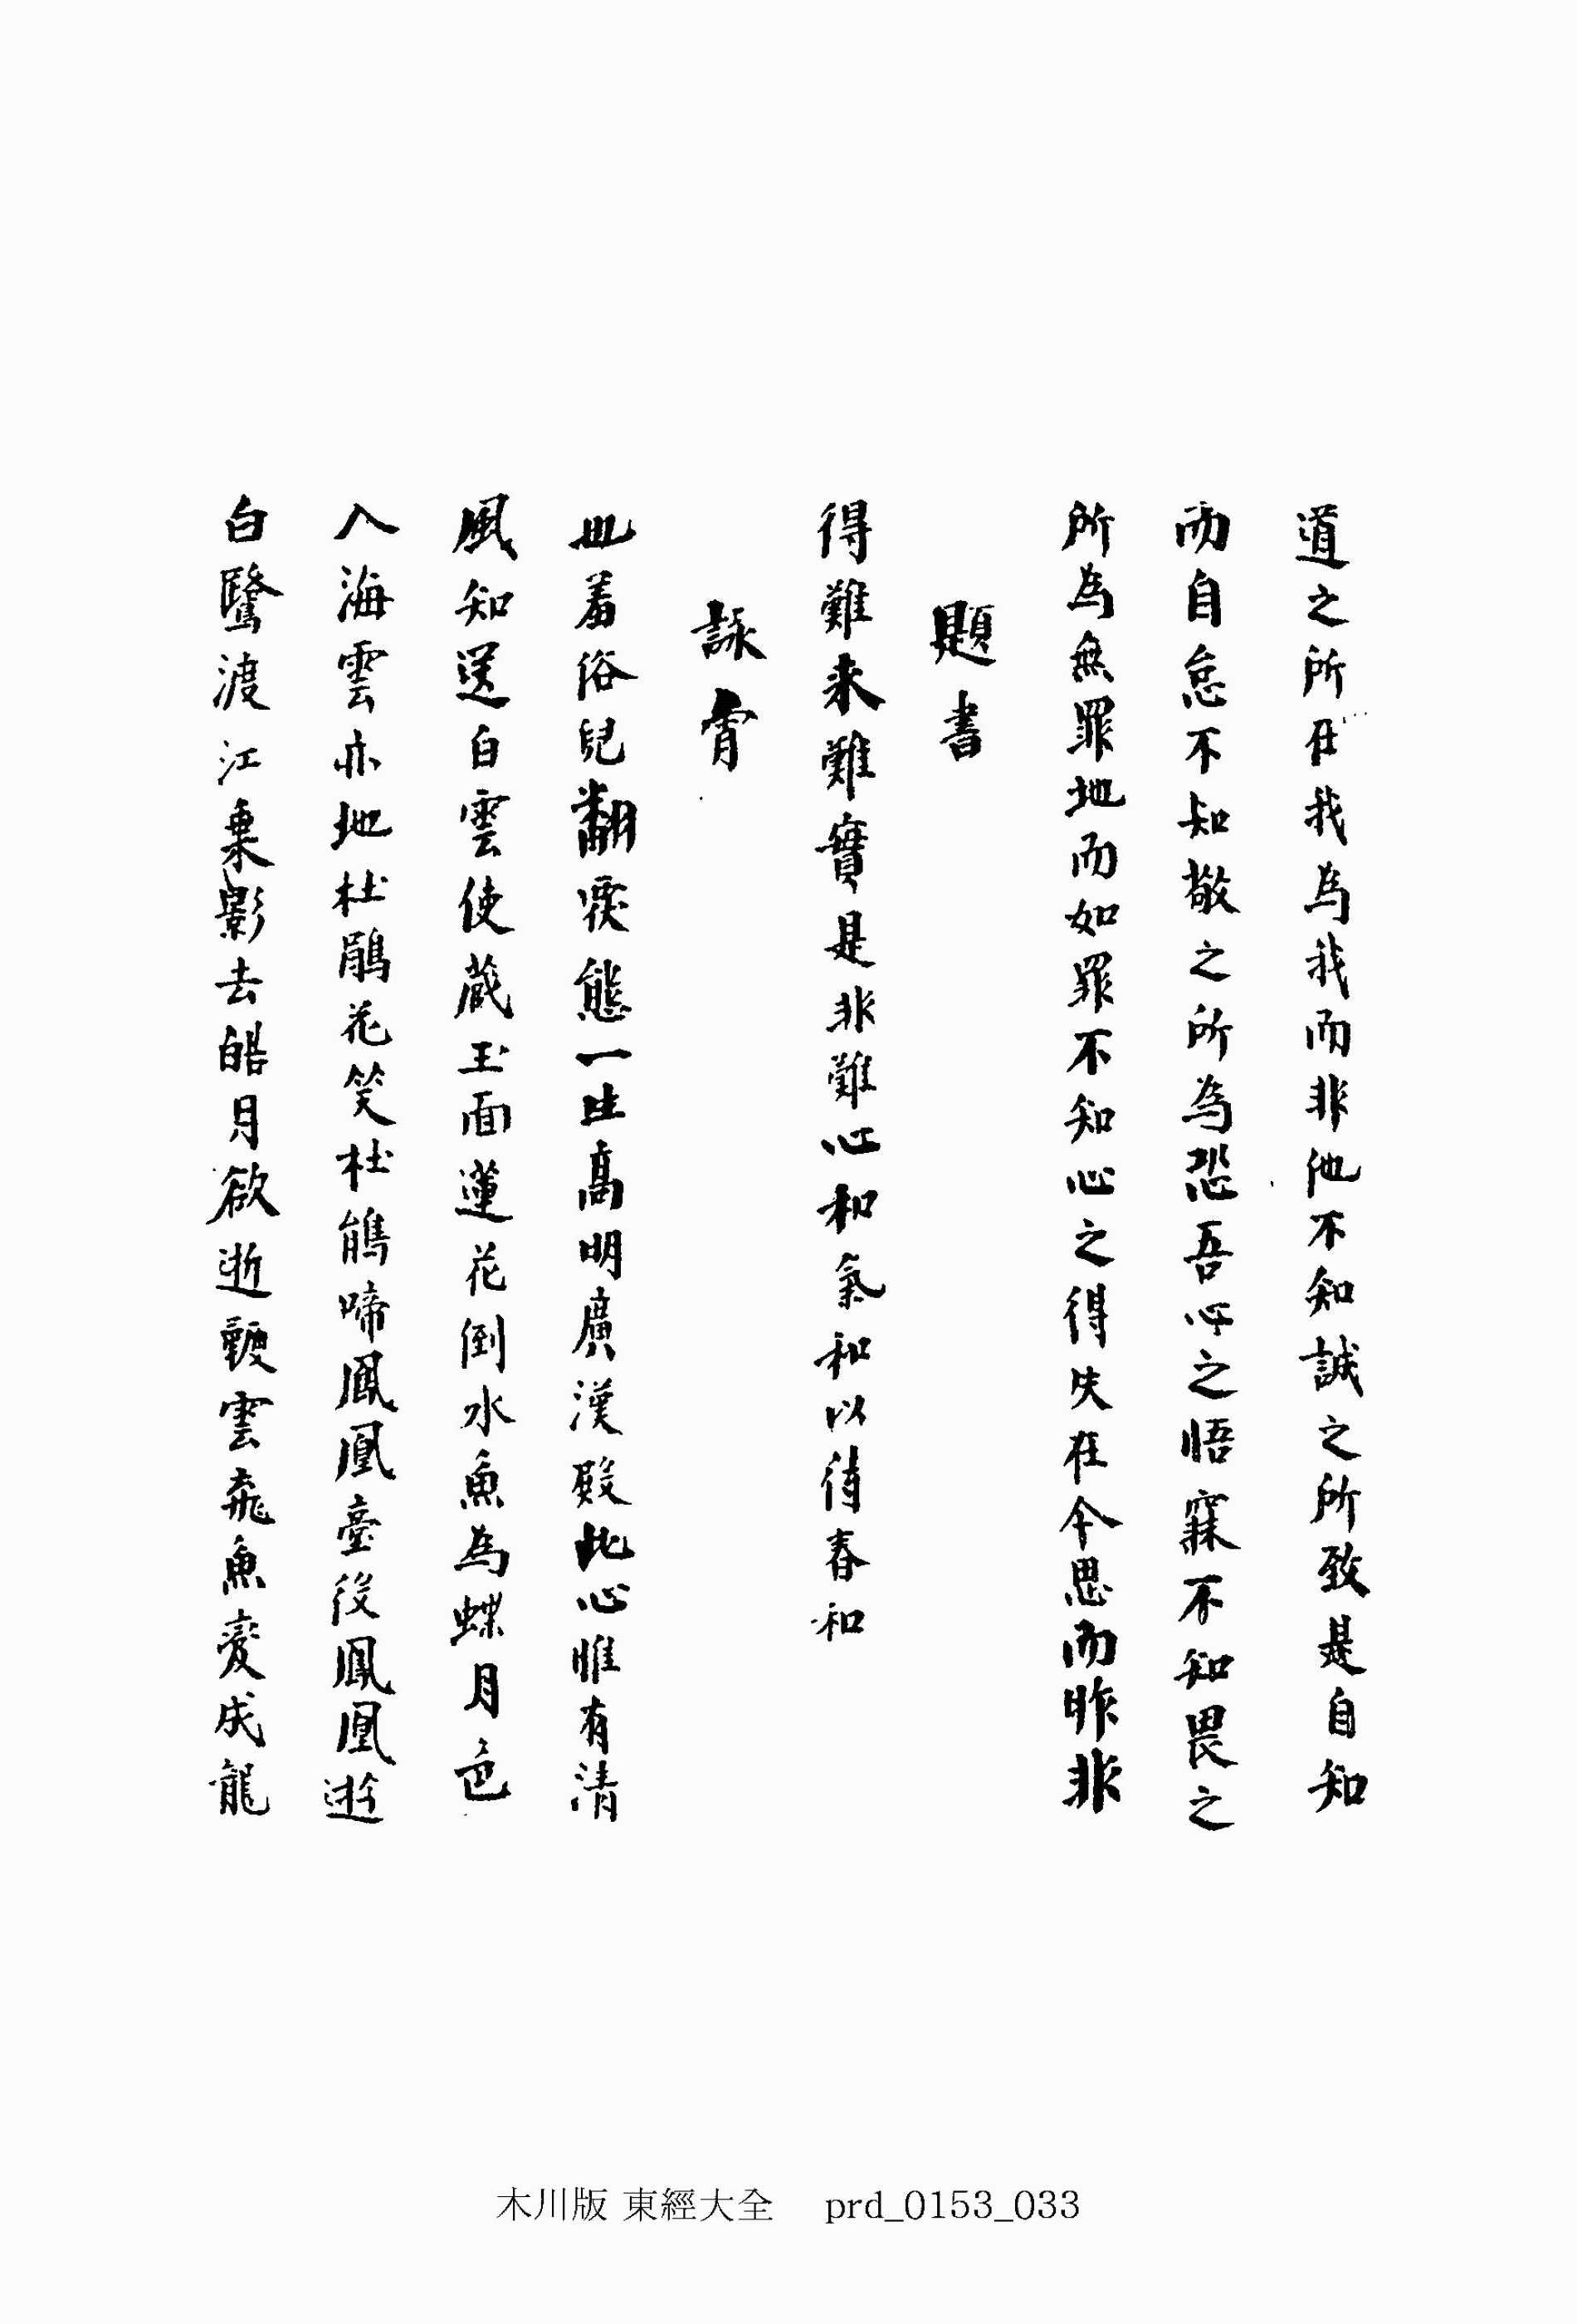 道之所在我為我而非他不知誠之所致是自知
而自怠不知敬之所為恐吾心之悟寐不知畏之
所為無罪地而如罪不知心之得失在今思而昨非
題書
得難來難實是非難心和氣和以待春和
詠宵
也羞俗兒翻覆態一生高明廣漢殿此心惟有清
風知送白雲使藏玉面蓮花倒水魚為蝶月色
入海雲亦地杜鵑花笑杜鵑啼鳳凰臺役鳳凰遊
白鷺渡江乘影去皓月欲逝鞭雲飛魚變成龍
木川版 東經大全 prd_0153_033